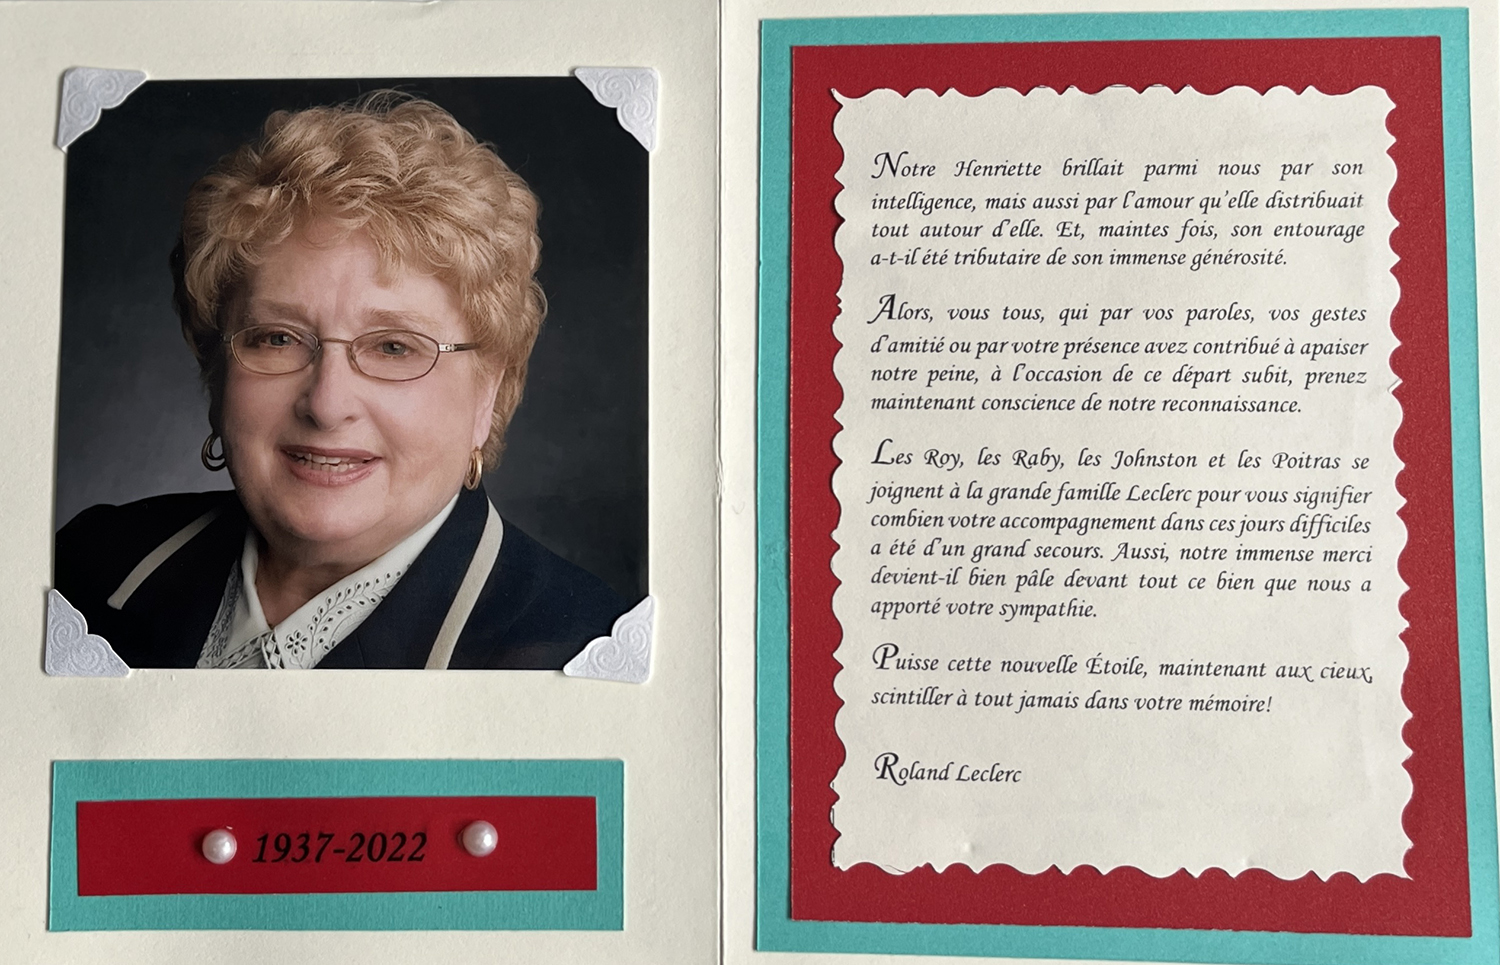 1937-2022
Notre Henriette brillait parmi nous par son
intelligence, mais aussi par l'amour qu'elle distribuait
tout autour d'elle. Et, maintes fois, son entourage
a-t-il été tributaire de son immense générosité.
Alors, vous tous, qui par vos paroles, vos gestes
d'amitié ou par votre présence avez contribué à apaiser
notre peine, à l'occasion de ce départ subit, prenez
maintenant conscience de notre reconnaissance.
Les Roy, les Raby, les Johnston et les Poitras se
joignent à la grande famille Leclerc pour vous signifier
combien votre accompagnement dans ces jours difficiles
a été d'un grand secours. Aussi, notre immense merci
devient-il bien pâle devant tout ce bien que nous a
apporté votre sympathie.
Puisse cette nouvelle Étoile, maintenant aux cieux,
scintiller à tout jamais dans votre mémoire!
Roland Leclerc